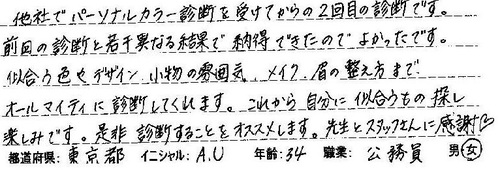 他社でパーソナルカラー診断を受けてからの2回目の診断です。
前回の診断と若干異なる結果で納得できたのでよかったです。
似合う色やデザイン、小物の雰囲気、メイク、眉の整え方まで
オールマイティに診断してくれます。これから自分に似合うもの探し
楽しみです。是非診断することをオススメします。先生とスタッフさんに感謝♡
都道府県: 東京都 イニシャル: A.U 年齢: 34 職業: 公務員 男・女